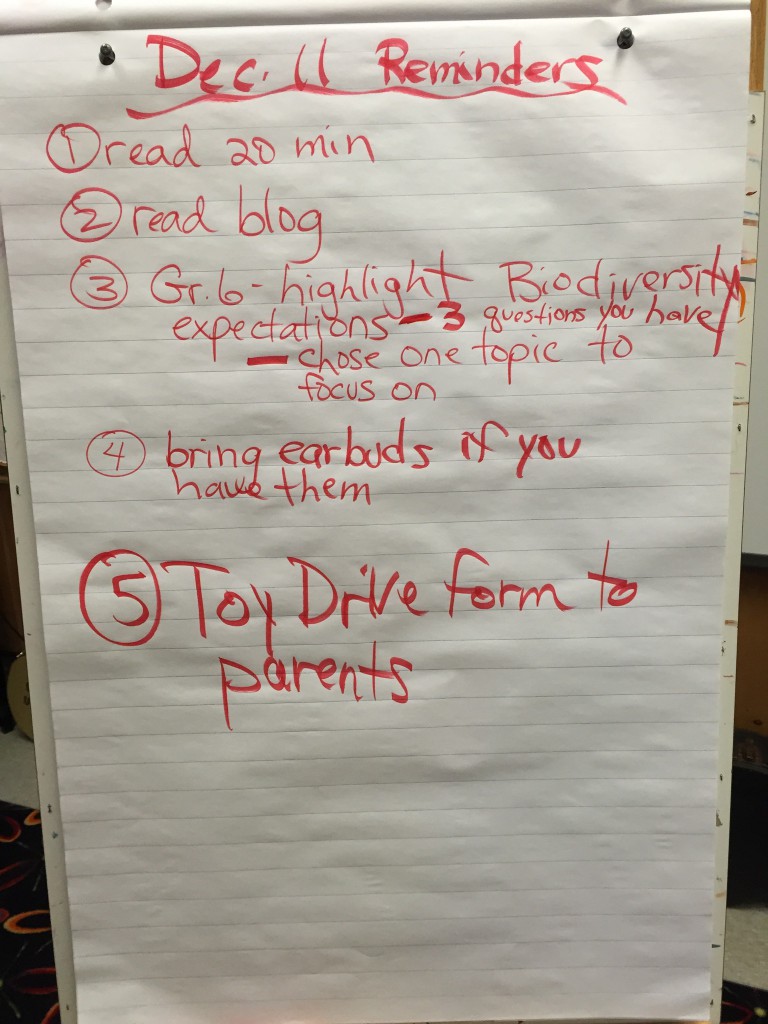 Dec. 11 Reminders
① read 20 min
② read blog
③ Gr. 6 - highlight Biodiversity
expectations - 3 questions you have
- chose one topic to
focus on
④ bring earbuds if you
have them
⑤ Toy Drive form to
parents